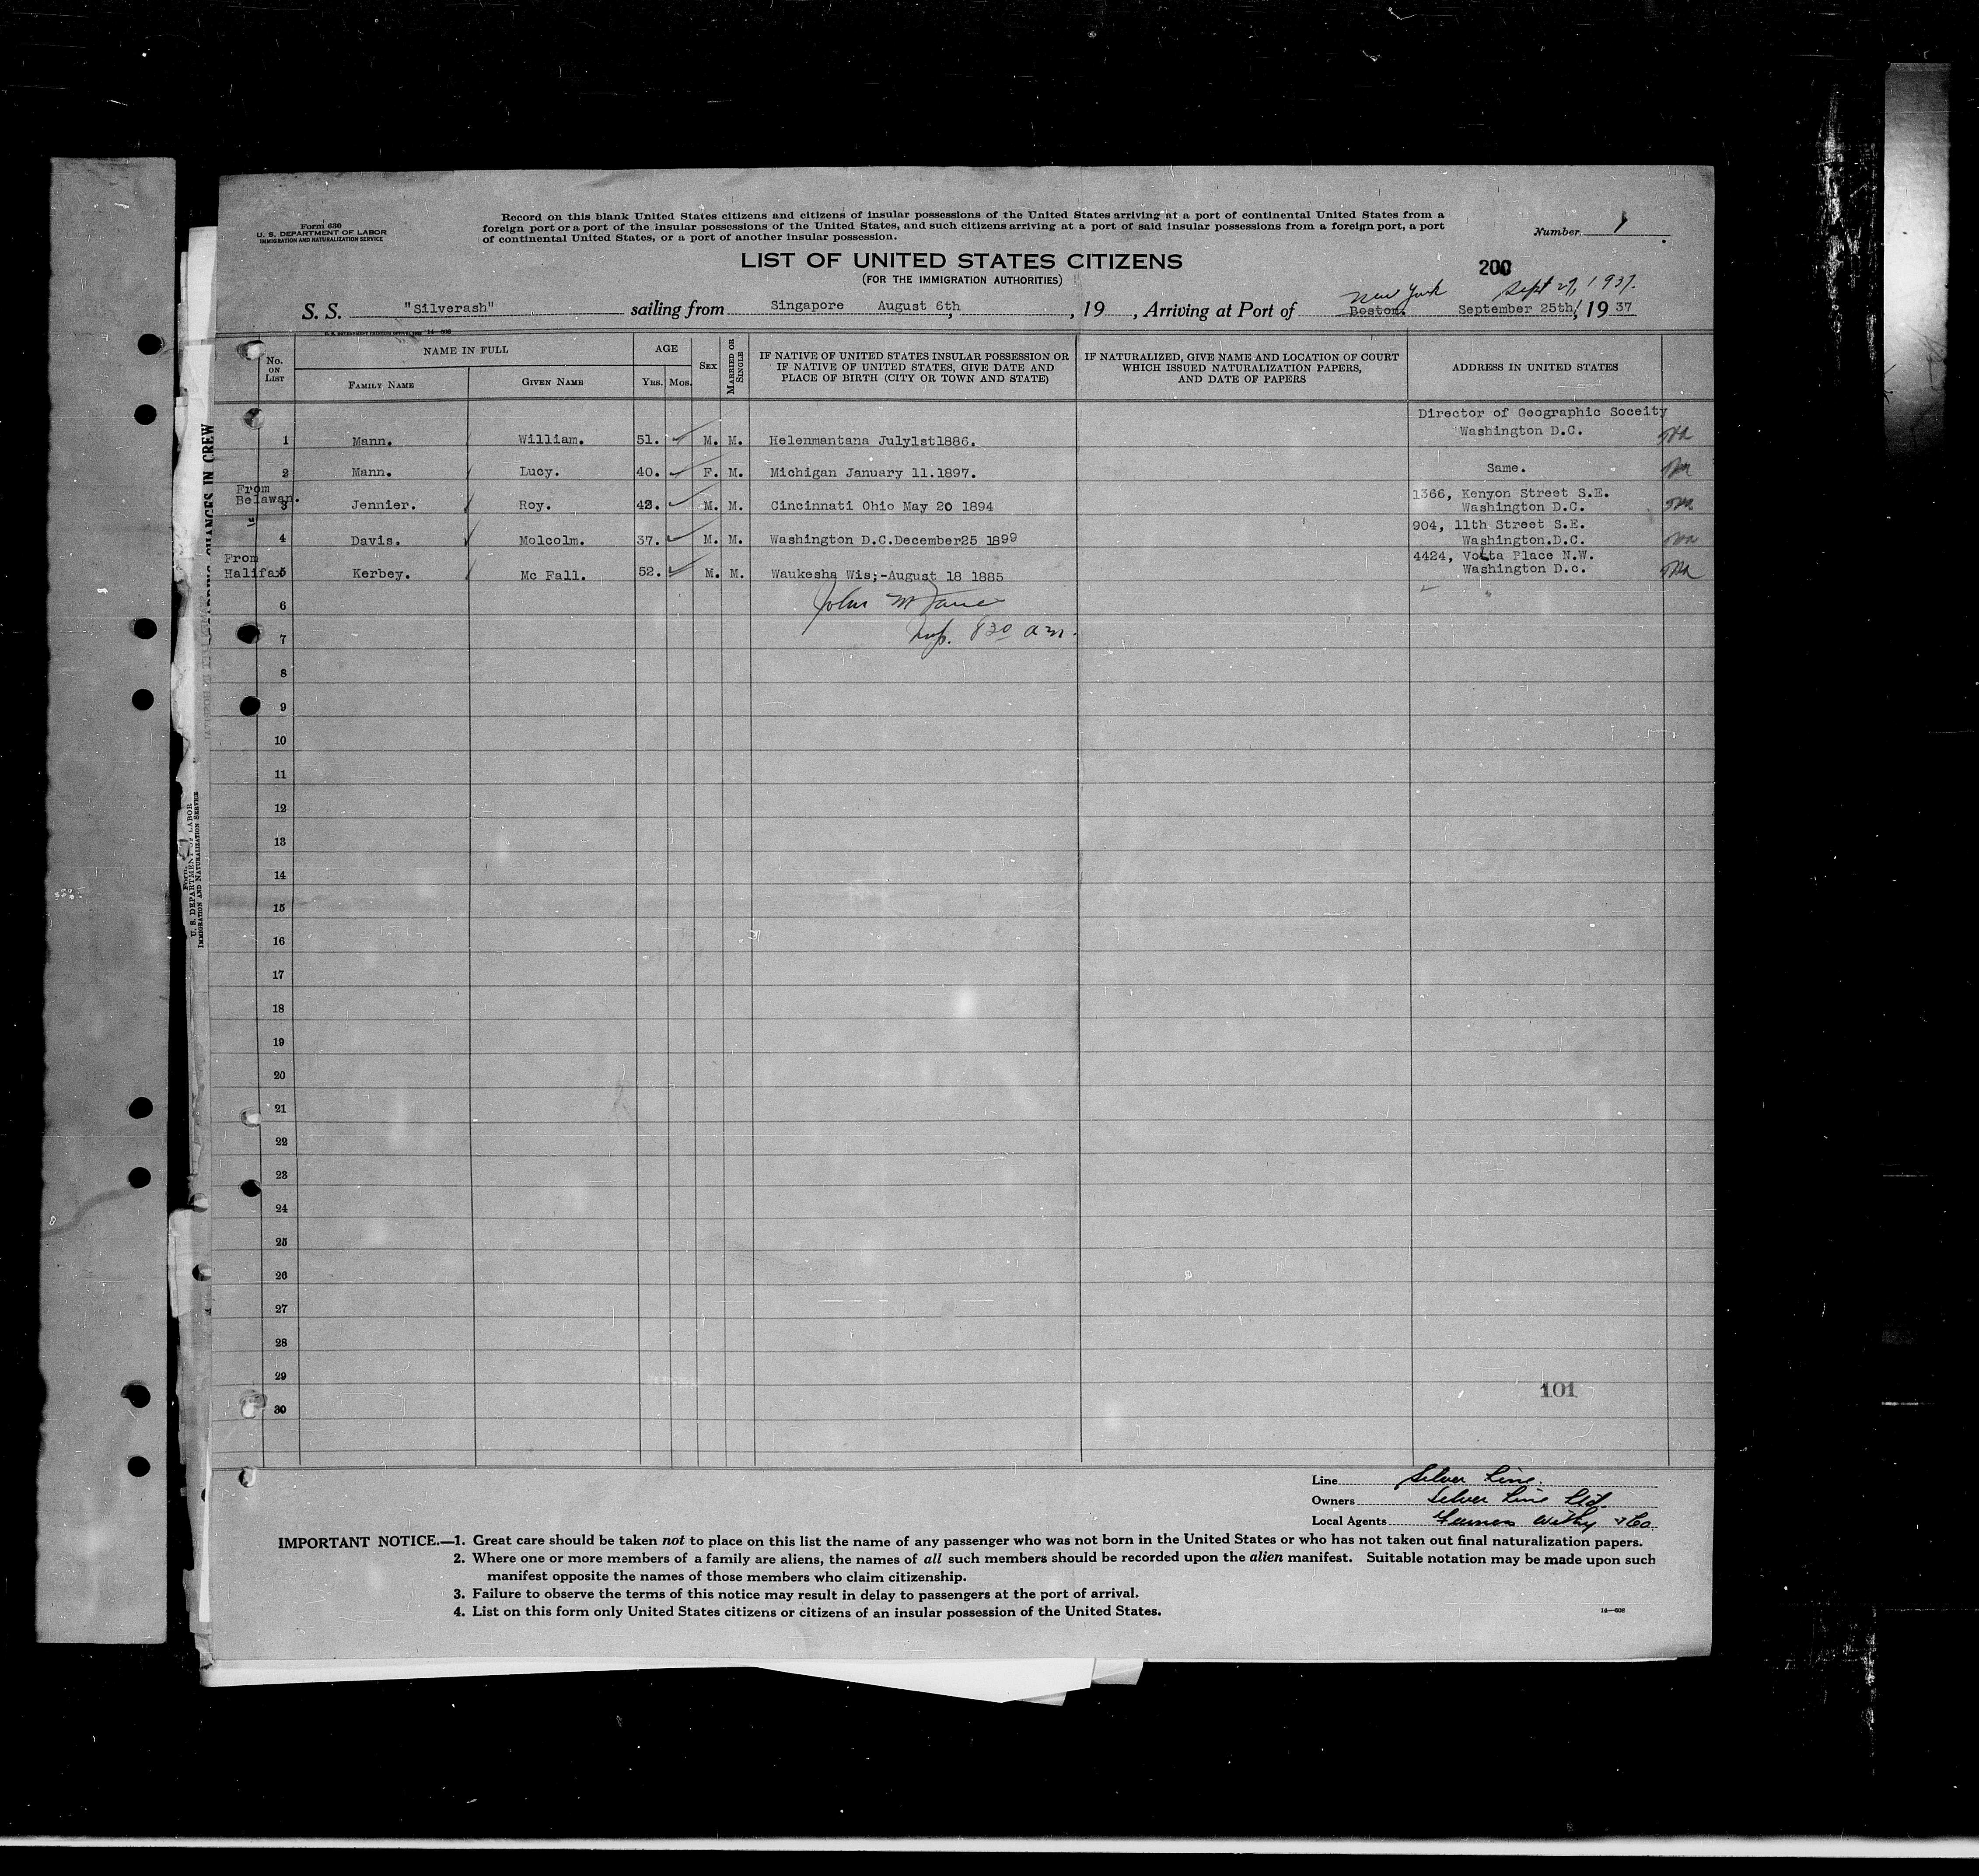 Form 630
U. S. DEPARTMENT OF LABOR
IMMIGRATION AND NATURALIZATION SERVICE
Record on this blank United States citizens and citizens of insular possessions of the United States arriving at a port of continental United States from a
foreign port or a port of the insular possessions of the United States, and such citizens arriving at a port of said insular possessions from a foreign port, a port
of continental United States, or a port of another insular possession.
Number
LIST OF UNITED STATES CITIZENS
(FOR THE IMMIGRATION AUTHORITIES)
200
New York Sept 27, 1937.
S. S. "Silverash" sailing from Singapore August 6th, , 19 , Arriving at Port of Boston. September 25th, 19 37
No. ON LIST
NAME IN FULL
FAMILY NAME
GIVEN NAME
AGE
YRS. MOS.
SEX
MARRIED OR SINGLE
IF NATIVE OF UNITED STATES INSULAR POSSESSION OR
IF NATIVE OF UNITED STATES, GIVE DATE AND
PLACE OF BIRTH (CITY OR TOWN AND STATE)
IF NATURALIZED, GIVE NAME AND LOCATION OF COURT
WHICH ISSUED NATURALIZATION PAPERS,
AND DATE OF PAPERS
ADDRESS IN UNITED STATES
Director of Geographic Soceity
1 Mann. William. 51. M. M. Helenmantana July1st1886. Washington D.C.
2 Mann. Lucy. 40. F. M. Michigan January 11.1897. Same.
From
Belawan.
1366, Kenyon Street S.E.
3 Jennier. Roy. 43. M. M. Cincinnati Ohio May 20 1894 Washington D.C.
904, 11th Street S.E.
4 Davis. Molcolm. 37. M. M. Washington D.C.December25 1899 Washington.D.C.
From
Halifax
4424, Volta Place N.W.
5 Kerbey. Mc Fall. 52. M. M. Waukesha Wis;-August 18 1885 Washington D.c.
6 John
7 830 am.
8
9
10
11
12
13
14
15
16
17
18
19
20
21
22
23
24
25
26
27
28
29
30
101
Line Silver Line.
Owners Silver Line Ltd.
Local Agents Furness Withy & Co
IMPORTANT NOTICE.—1. Great care should be taken not to place on this list the name of any passenger who was not born in the United States or who has not taken out final naturalization papers.
2. Where one or more members of a family are aliens, the names of all such members should be recorded upon the alien manifest. Suitable notation may be made upon such
manifest opposite the names of those members who claim citizenship.
3. Failure to observe the terms of this notice may result in delay to passengers at the port of arrival.
4. List on this form only United States citizens or citizens of an insular possession of the United States.
14—608
CHANGES IN CREW
U. S. DEPARTMENT OF LABOR
IMMIGRATION AND NATURALIZATION SERVICE